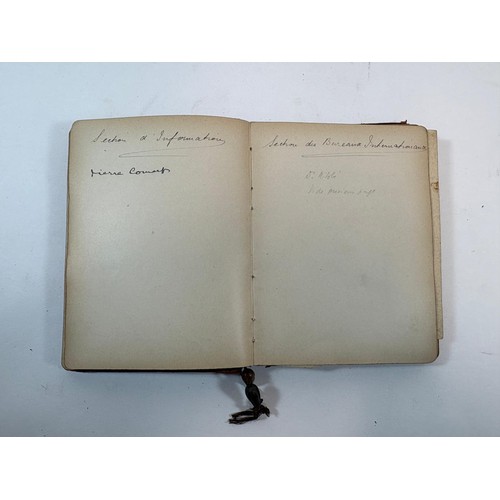 Section d'Information
Pierre Comert
Section des Bureaux Internationaux